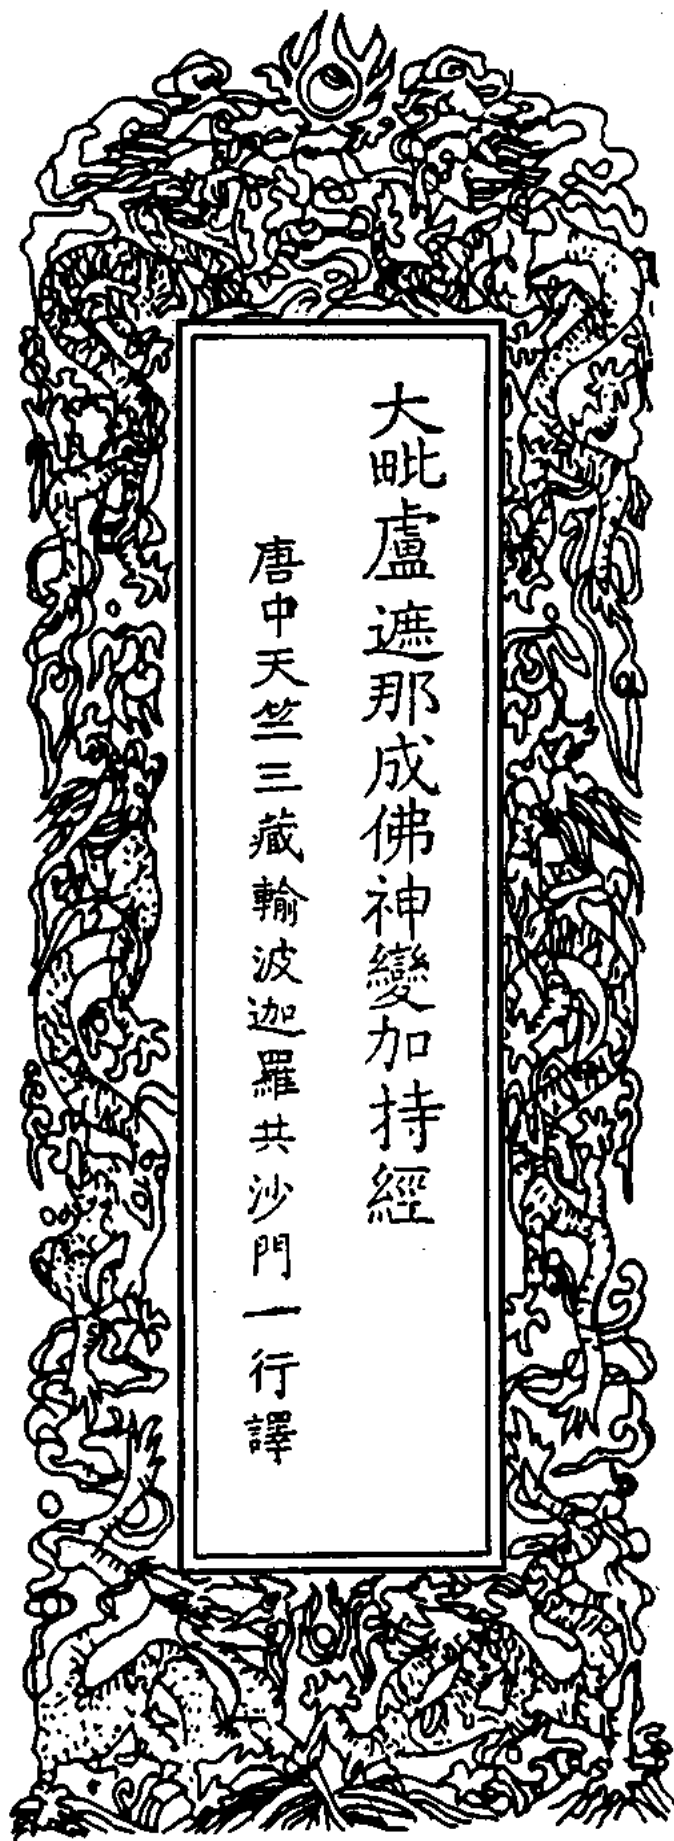 大毗盧遮那成佛神變加持經
唐中天竺三藏輸波迦羅共沙門一行譯